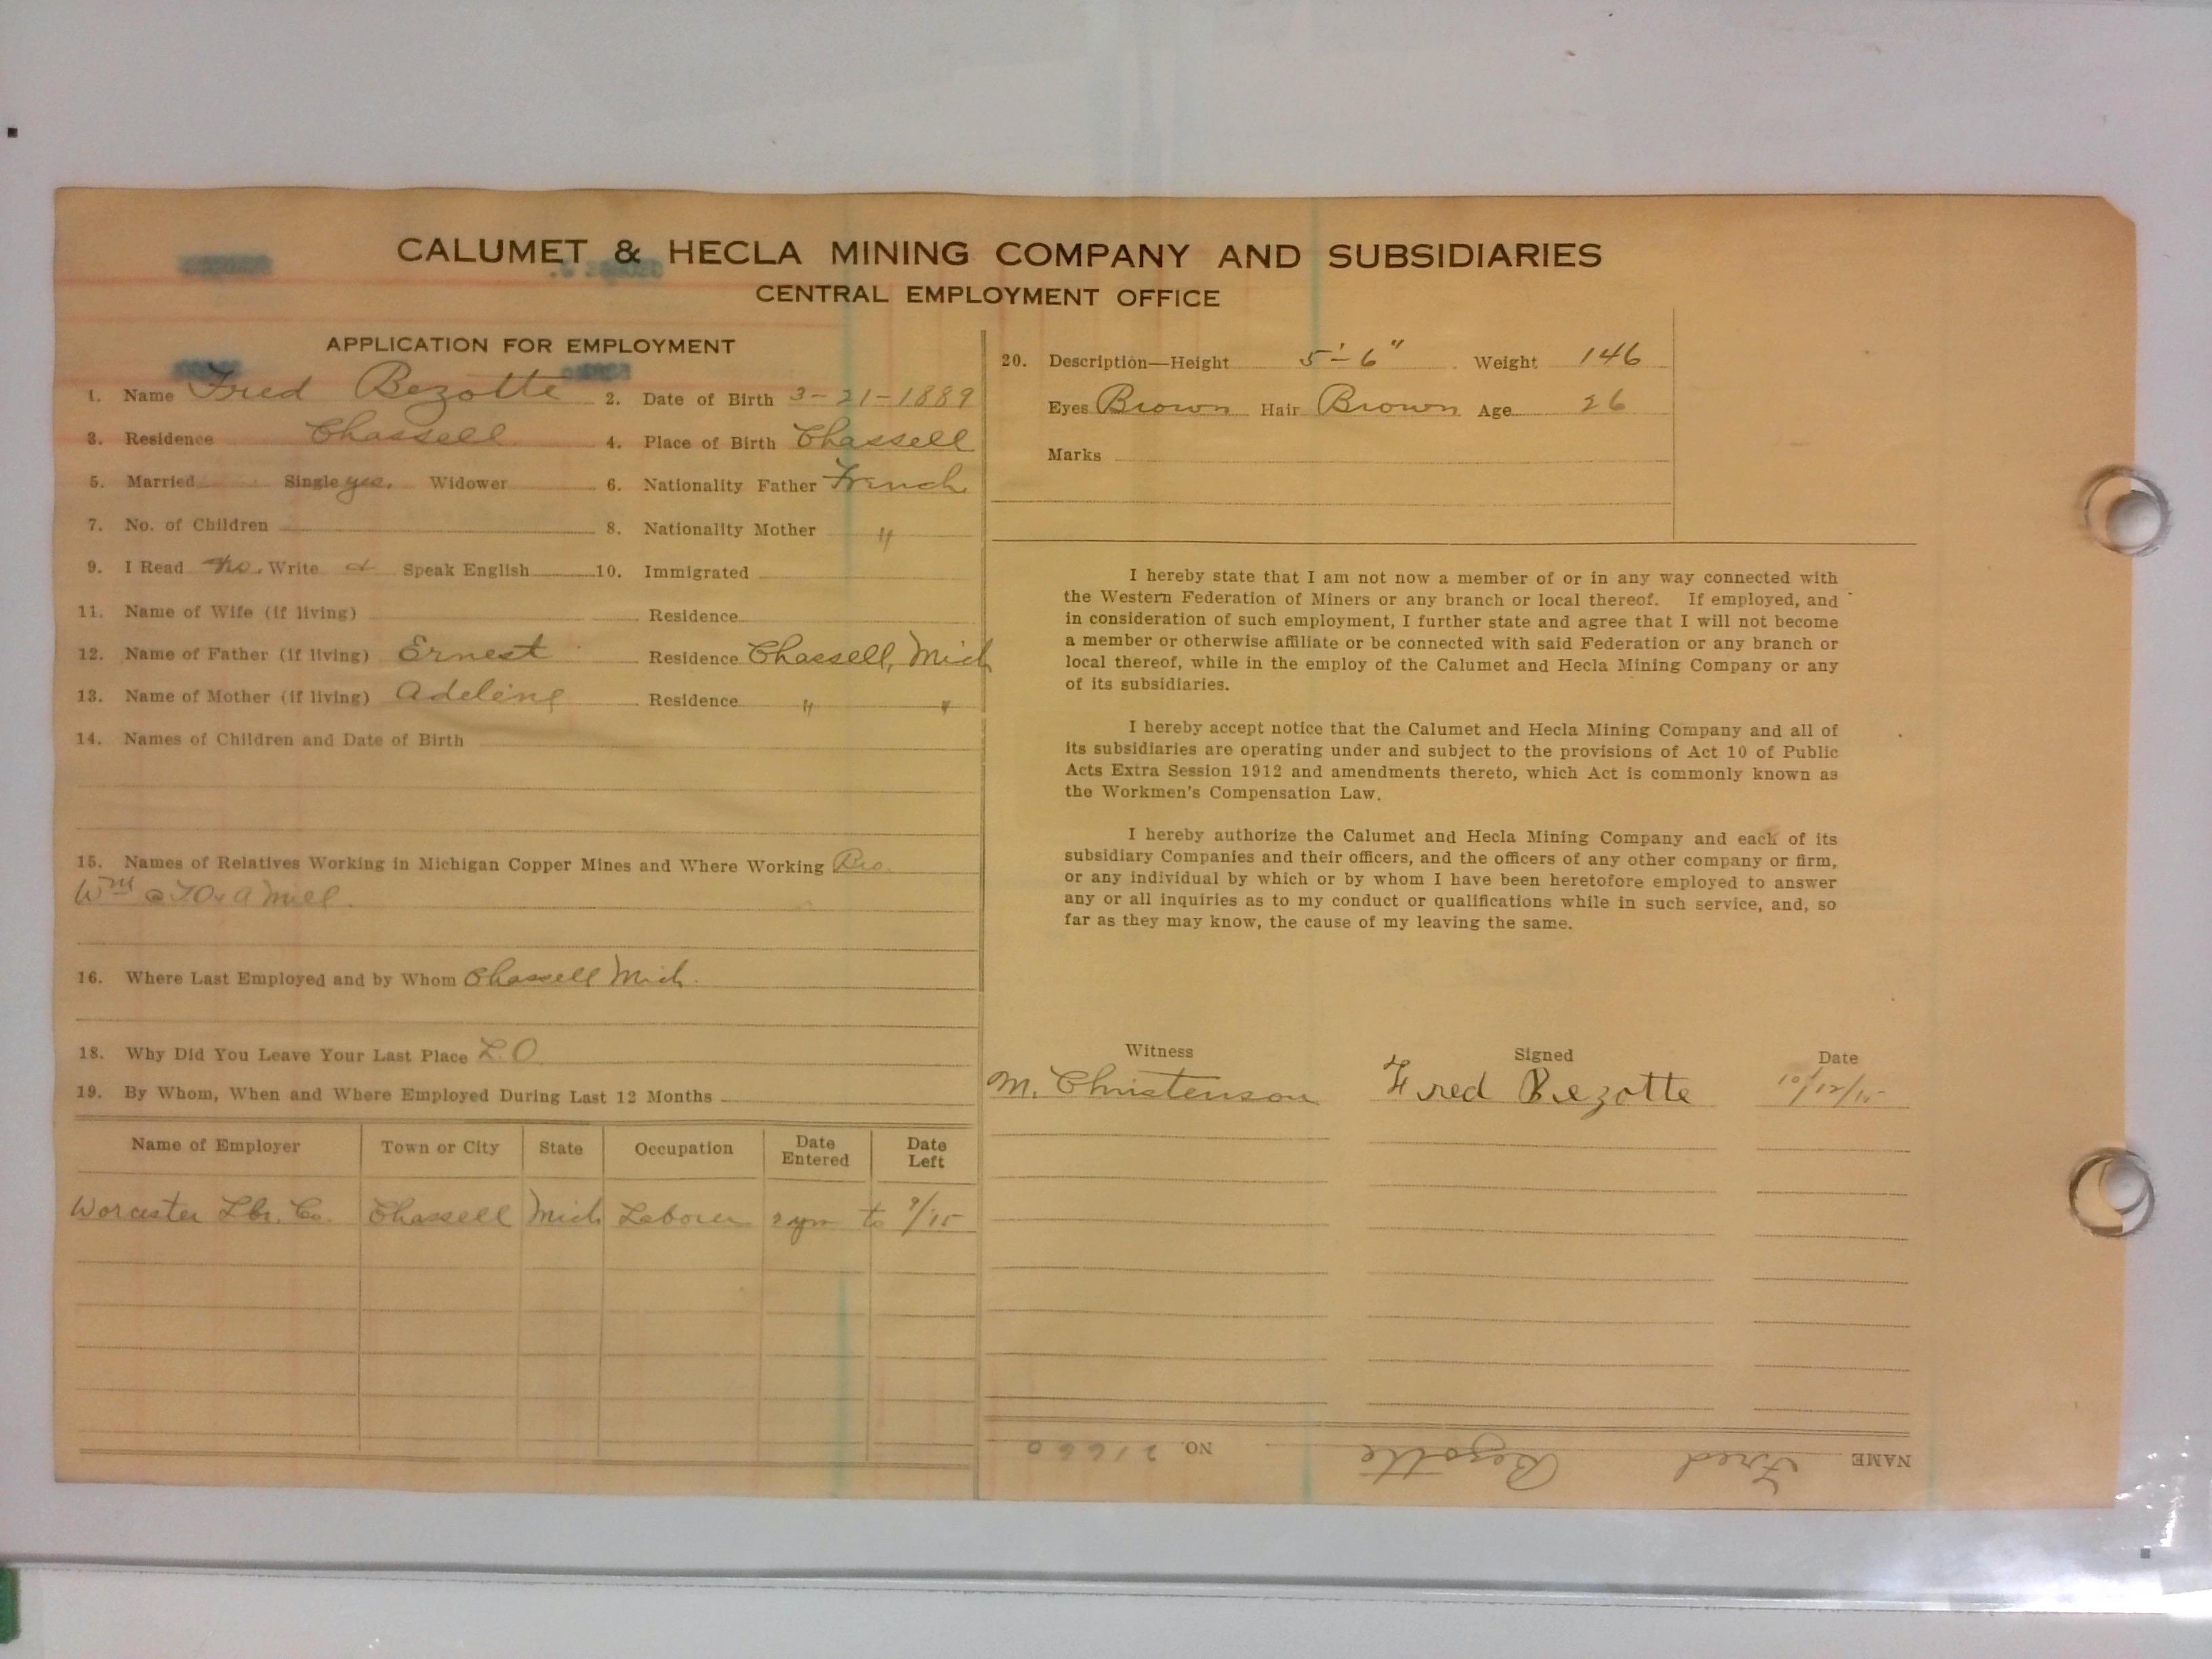 CALUMET & HECLA MINING COMPANY AND SUBSIDIARIES
CENTRAL EMPLOYMENT OFFICE
APPLICATION FOR EMPLOYMENT
1. Name Fred Bezotte 2. Date of Birth 3-21-1889
3. Residence Chassell 4. Place of Birth Chassell
5. Married Single yes. Widower 6. Nationality Father French
7. No. of Children 8. Nationality Mother "
9. I Read No. Write Speak English 10. Immigrated
11. Name of Wife (if living) Residence
12. Name of Father (if living) Ernest Residence Chassell, Mich
13. Name of Mother (if living) Adeline Residence " "
14. Names of Children and Date of Birth
15. Names of Relatives Working in Michigan Copper Mines and Where Working Bro.
Wm @ Mill.
16. Where Last Employed and by Whom Chassell Mich.
18. Why Did You Leave Your Last Place L.O.
19. By Whom, When and Where Employed During Last 12 Months
Name of Employer Town or City State Occupation Date Entered Date Left
Worcester Lbr. Co. Chassell Mich Laborer 2 yrs to 9/15
20. Description—Height 5'-6" Weight 146
Eyes Brown Hair Brown Age 26
Marks
I hereby state that I am not now a member of or in any way connected with
the Western Federation of Miners or any branch or local thereof. If employed, and
in consideration of such employment, I further state and agree that I will not become
a member or otherwise affiliate or be connected with said Federation or any branch or
local thereof, while in the employ of the Calumet and Hecla Mining Company or any
of its subsidiaries.
I hereby accept notice that the Calumet and Hecla Mining Company and all of
its subsidiaries are operating under and subject to the provisions of Act 10 of Public
Acts Extra Session 1912 and amendments thereto, which Act is commonly known as
the Workmen's Compensation Law.
I hereby authorize the Calumet and Hecla Mining Company and each of its
subsidiary Companies and their officers, and the officers of any other company or firm,
or any individual by which or by whom I have been heretofore employed to answer
any or all inquiries as to my conduct or qualifications while in such service, and, so
far as they may know, the cause of my leaving the same.
Witness Signed Date
M. Christenson Fred Bezotte 10/12/15
NAME Fred Bezotte NO. 21660